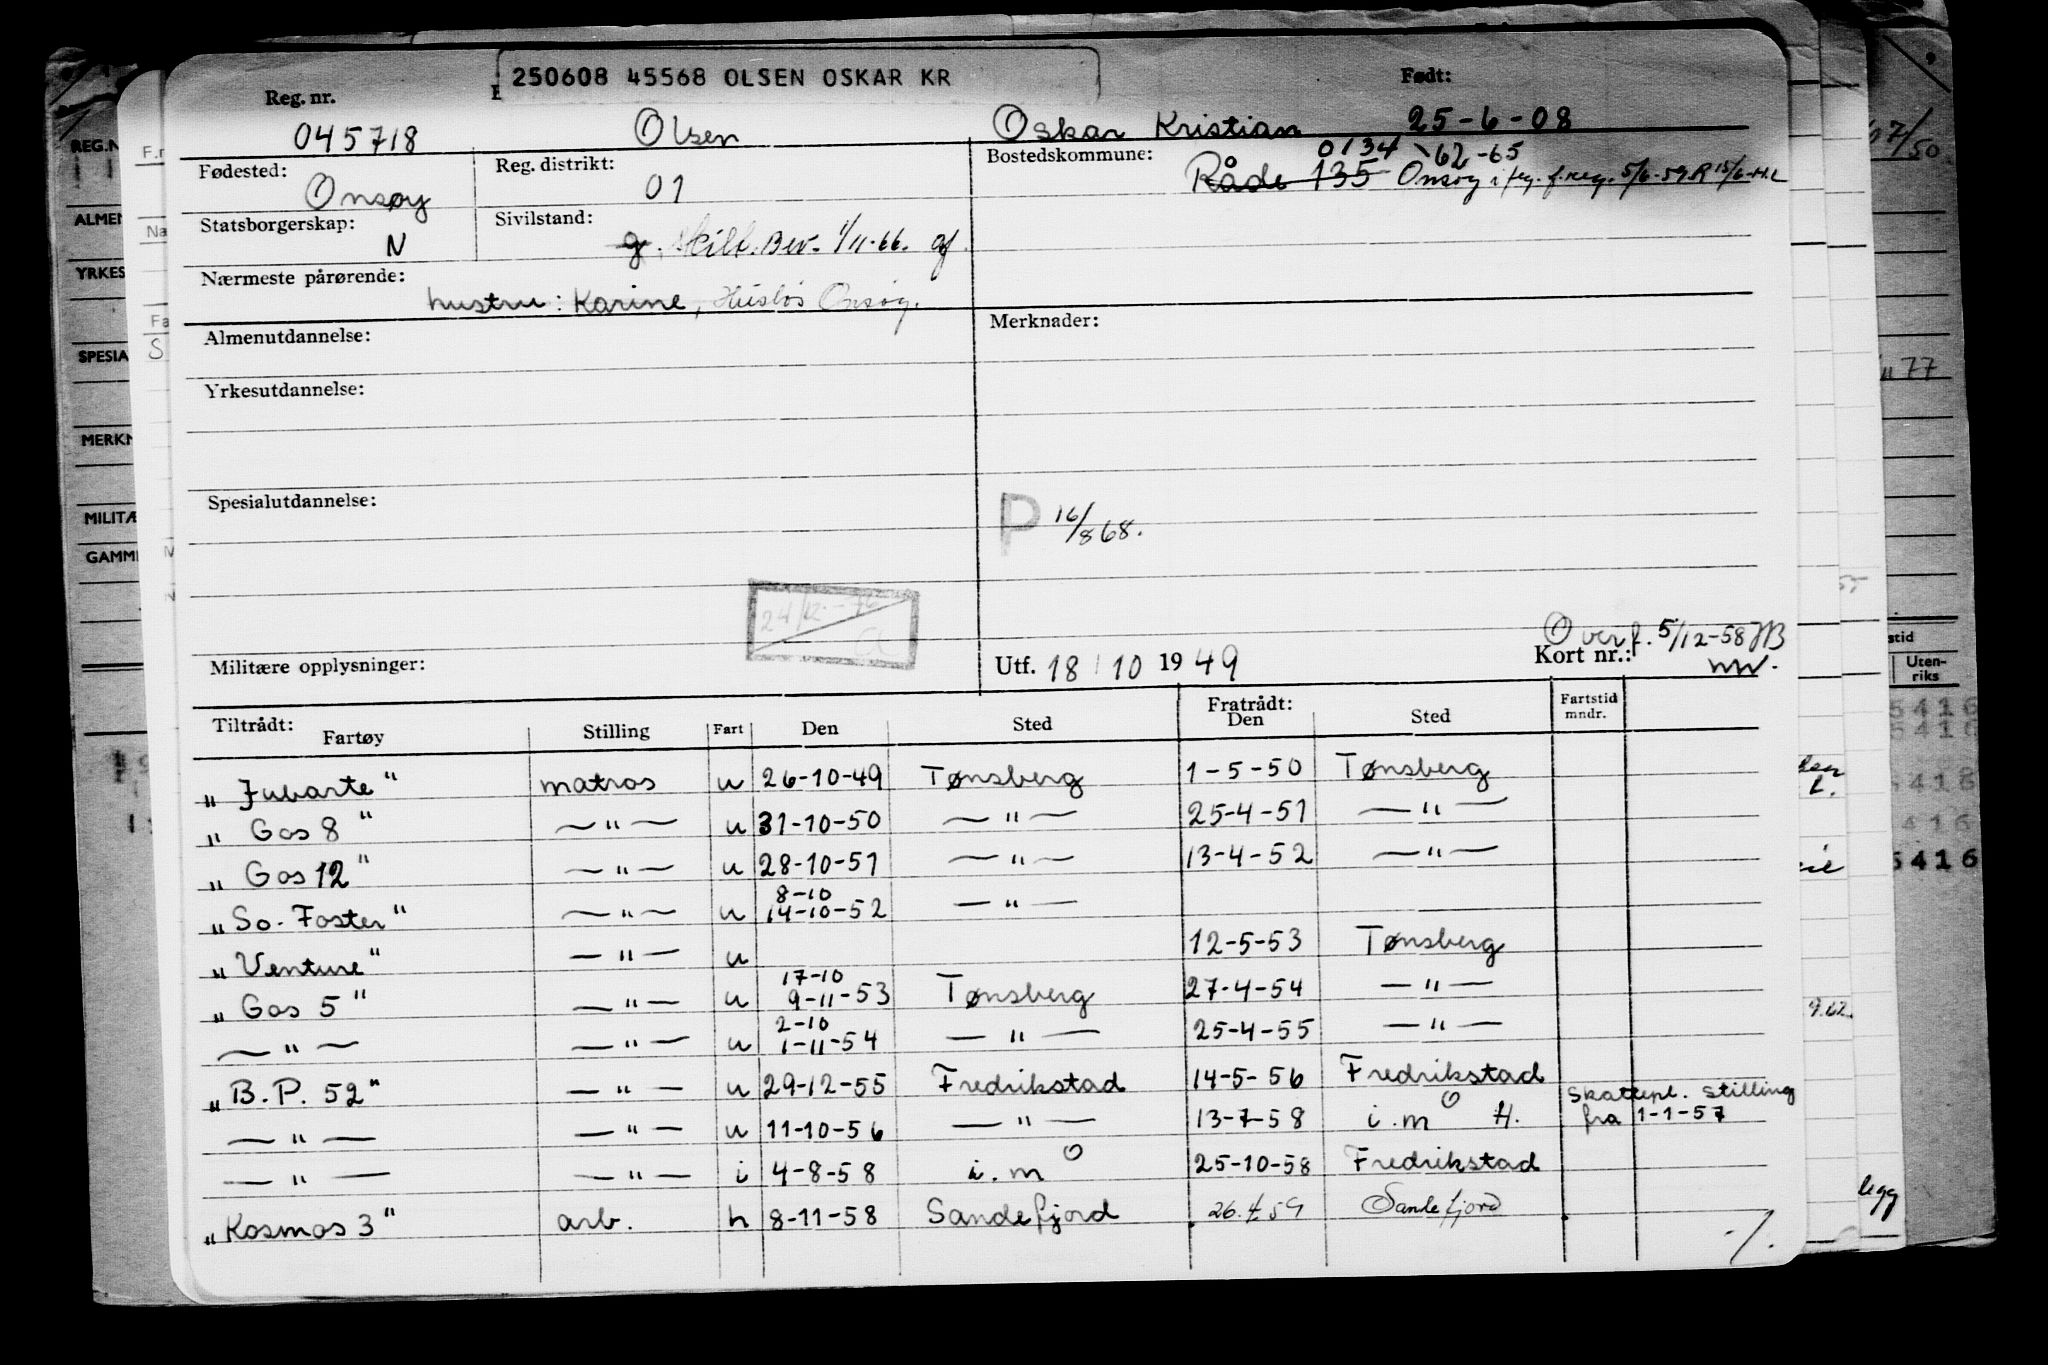 250608 45568 OLSEN OSKAR KR
Reg. nr. Født:
045718 Olsen Oskar Kristian 25-6-08
Fødested: Reg. distrikt: Bostedskommune: 0134 62-65
Onsøy 01 Råde 135 Onsøy i flg. f.reg. 5/6-59
Statsborgerskap: Sivilstand:
N g. skilt. Bev. 1/11-66.
Nærmeste pårørende:
hustru: Karine, Husløs Onsøy.
Almenutdannelse: Merknader:
Yrkesutdannelse:
Spesialutdannelse:
P 16/8 68.
24/12-76
Overf. 5/12-58 HB
Militære opplysninger: Utf. 18/10 1949 Kort nr.:
Tiltrådt: Fartøy Stilling Fart Den Sted Fratrådt: Den Sted Fartstid mndr.
"Jubarte" matros u 26-10-49 Tønsberg 1-5-50 Tønsberg
"Gos 8" — " — u 31-10-50 — " — 25-4-51 — " —
"Gos 12" — " — u 28-10-51 — " — 13-4-52 — " —
8-10
"So. Foster" — " — u 14-10-52 — " —
"Venture" — " — u 12-5-53 Tønsberg
17-10
"Gos 5" — " — u 9-11-53 Tønsberg 27-4-54 — " —
2-10
— " — — " — u 1-11-54 — " — 25-4-55 — " —
"B.P. 52" — " — u 29-12-55 Fredrikstad 14-5-56 Fredrikstad
Skattepl. stilling
— " — — " — u 11-10-56 — " — 13-7-58 i.m O H. fra 1-1-57
— " — — " — i 4-8-58 i.m O 25-10-58 Fredrikstad
"Kosmos 3" arb. h 8-11-58 Sandefjord 26.5.59 Sandefjord
REG.N
ALMEN
YRKES
SPESIA
MERKN
MILITÆ
GAMM
7/50
77
stid
Uten-
riks
5416
5416
5416
416
5416
9.62.
legg